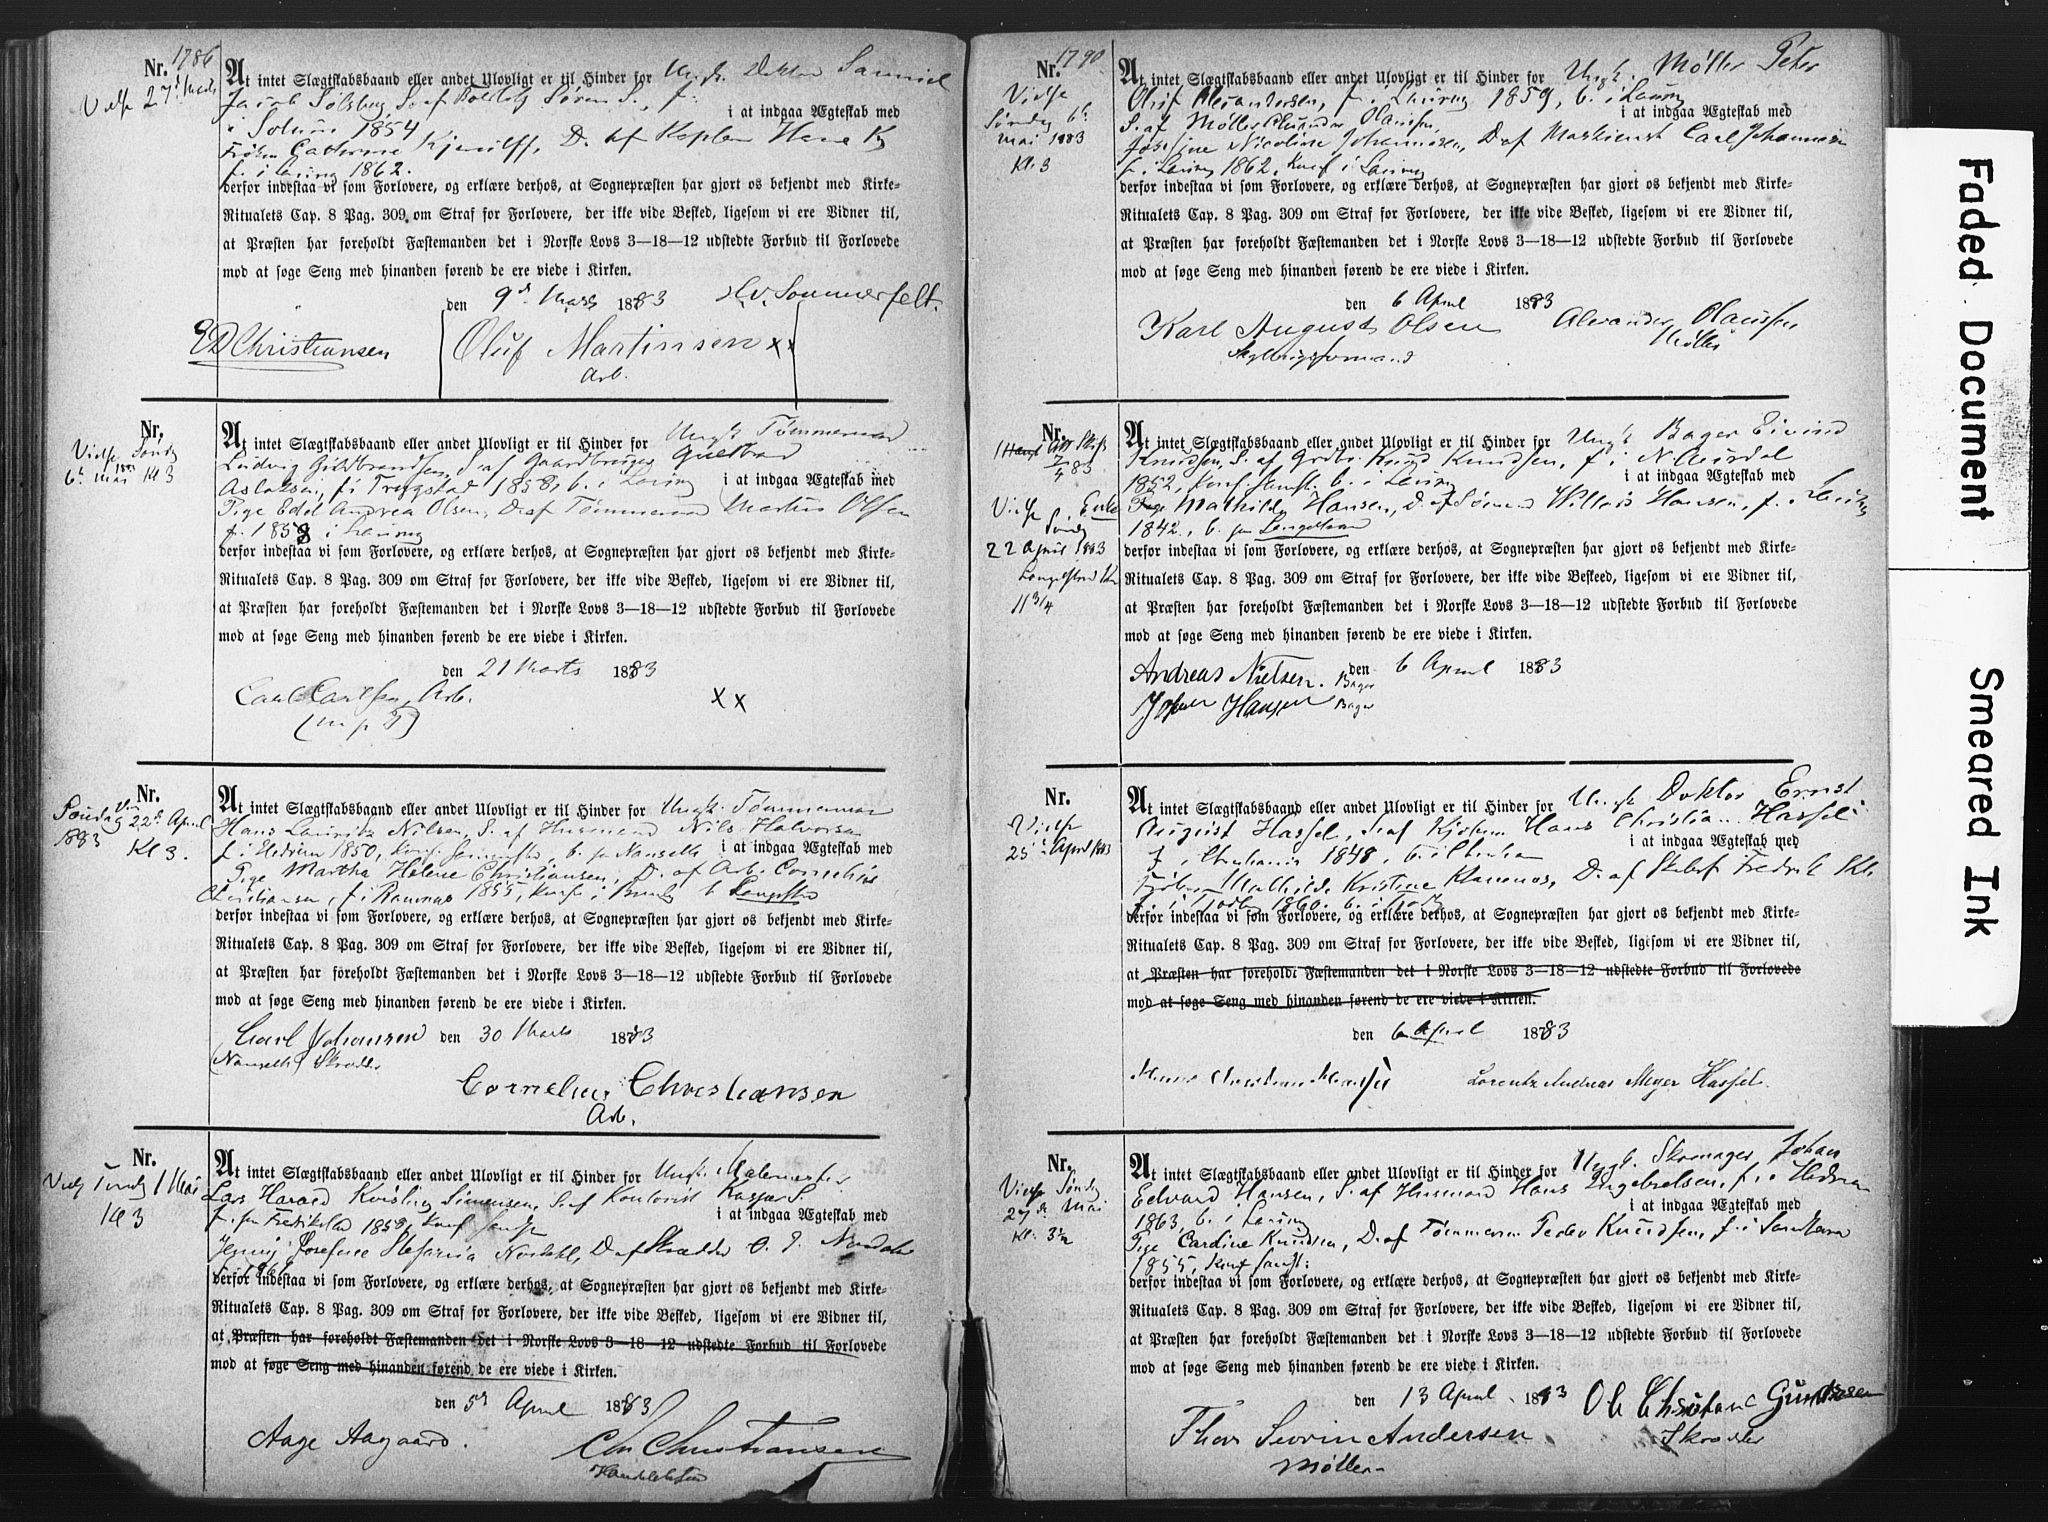 Nr. 1786
Viedse 27d Marts
At intet Slægtskabsbaand eller andet Ulovligt er til Hinder for Ungk. Doktor Samuel
Jacob Sølsberg S. af Søren S., f.
i at indgaa Ægteskab med
i Solum 1854
Frøken Cathrine Kjerulff, D. af Kaplan Hans K
f. i Laurvig 1862.
derfor indestaa vi som Forlovere, og erklære derhos, at Sognepræsten har gjort os bekjendt med Kirke-
Ritualets Cap. 8 Pag. 309 om Straf for Forlovere, der ikke vide Besked, ligesom vi ere Vidner til,
at Præsten har foreholdt Fæstemanden det i Norske Lovs 3—18—12 udstedte Forbud til Forlovede
mod at søge Seng med hinanden førend de ere viede i Kirken.
den 9d Marts 1883 Sommerfelt.
Christiansen Oluf Martinsen xx
Arb.
Nr.
Viedse Sønd
6te Mai 1883 Kl 3
At intet Slægtskabsbaand eller andet Ulovligt er til Hinder for Ungk. Tømmermand
Ludvig Guldbrandsen, S. af Gaardbruger Guldbrand
Aslaksen, f. i Trygstad 1858, b. i Laurvig i at indgaa Ægteskab med
Pige Edel Andrea Olsen, D. af Tømmermand Martin Olsen
f. 1858 i Laurvig
derfor indestaa vi som Forlovere, og erklære derhos, at Sognepræsten har gjort os bekjendt med Kirke-
Ritualets Cap. 8 Pag. 309 om Straf for Forlovere, der ikke vide Besked, ligesom vi ere Vidner til,
at Præsten har foreholdt Fæstemanden det i Norske Lovs 3—18—12 udstedte Forbud til Forlovede
mod at søge Seng med hinanden førend de ere viede i Kirken.
den 21 Marts 1883
Carl Carlsen, Arb. xx
(m p P)
Nr.
Søndag 22d April
1883 Kl 3.
At intet Slægtskabsbaand eller andet Ulovligt er til Hinder for Ungk. Tømmermand
Hans Lauritz Nilsen, S. af Husmand Nils Halvorsen
f. i Hedrum 1850, b. pa Nanset i at indgaa Ægteskab med
Pige Martha Helene Christiansen, D. af Arb. Cornelius
Christiansen, f. i 1855, konf. i b. Langestrand
derfor indestaa vi som Forlovere, og erklære derhos, at Sognepræsten har gjort os bekjendt med Kirke-
Ritualets Cap. 8 Pag. 309 om Straf for Forlovere, der ikke vide Besked, ligesom vi ere Vidner til,
at Præsten har foreholdt Fæstemanden det i Norske Lovs 3—18—12 udstedte Forbud til Forlovede
mod at søge Seng med hinanden førend de ere viede i Kirken.
Carl Johansen den 30 Marts 1883
Nanset Skrædder
Cornelius Christiansen
Arb.
Nr.
1 Mai
Kl 3
At intet Slægtskabsbaand eller andet Ulovligt er til Hinder for Ungk. Malermester
Lars Harald Simonsen, S. af Kontorist Kasper S.
f. pa Fredrikstad 1858, konf. i at indgaa Ægteskab med
Jenny Josefine Stefania Nordahl, D. af Skrædder
f. 1861
derfor indestaa vi som Forlovere, og erklære derhos, at Sognepræsten har gjort os bekjendt med Kirke-
Ritualets Cap. 8 Pag. 309 om Straf for Forlovere, der ikke vide Besked, ligesom vi ere Vidner til,
at Præsten har foreholdt Fæstemanden det i Norske Lovs 3—18—12 udstedte Forbud til Forlovede
mod at søge Seng med hinanden førend de ere viede i Kirken.
den 5d April 1883
Aage Aagaard. Chr Christiansen
Nr. 1790
Viedse
Søndag 6te
Mai 1883
Kl. 3
At intet Slægtskabsbaand eller andet Ulovligt er til Hinder for Ungk. Møller Peter
Oluf Alexandersen, f. i Laurvig 1859, b. i Laurvig
i at indgaa Ægteskab med
S. af Møller Alexander Olaussen,
Josefine Nicoline Johannesen, D. af Maskinist Carl Johannesen
f. i Laurvig 1862, konf i Laurvig
derfor indestaa vi som Forlovere, og erklære derhos, at Sognepræsten har gjort os bekjendt med Kirke-
Ritualets Cap. 8 Pag. 309 om Straf for Forlovere, der ikke vide Besked, ligesom vi ere Vidner til,
at Præsten har foreholdt Fæstemanden det i Norske Lovs 3—18—12 udstedte Forbud til Forlovede
mod at søge Seng med hinanden førend de ere viede i Kirken.
den 6 April 1883
Karl August Olsen Alexander Olaussen
Møller
Nr.
7/4 83
Viedse Enke
Sønd
22 April 1883
Langestrand Kl
11 3/4
At intet Slægtskabsbaand eller andet Ulovligt er til Hinder for Ungk Bager Eivind
Knudsen, S. af Grdbr. Knud Knudsen, f. i N. Aurdal
i at indgaa Ægteskab med
1852, b. i Laurvig
Pige Mathilde Hansen, D. af Sømand Willas Hansen, f. i Laurvig
1842, b. pa Langestrand
derfor indestaa vi som Forlovere, og erklære derhos, at Sognepræsten har gjort os bekjendt med Kirke-
Ritualets Cap. 8 Pag. 309 om Straf for Forlovere, der ikke vide Beskeed, ligesom vi ere Vidner til,
at Præsten har foreholdt Fæstemanden det i Norske Lovs 3—18—12 udstedte Forbud til Forlovede
mod at søge Seng med hinanden førend de ere viede i Kirken.
Andreas Nielsen. Bager den 6 April 1883
Hansen Bager
Nr.
Viedse
25 April 1883
At intet Slægtskabsbaand eller andet Ulovligt er til Hinder for Ungk Doktor Ernst
August Hassel, S. af Kjøbm Hans Christian Hassel
i at indgaa Ægteskab med
f. i Christiania 1848,
Frøken Mathilde Kristine Klavenæs, D. af Skibsf Fredrik Kl.
1860. b. i
derfor indestaa vi som Forlovere, og erklære derhos, at Sognepræsten har gjort os bekjendt med Kirke-
Ritualets Cap. 8 Pag. 309 om Straf for Forlovere, der ikke vide Besked, ligesom vi ere Vidner til,
at Præsten har foreholdt Fæstemanden det i Norske Lovs 3—18—12 udstedte Forbud til Forlovede
mod at søge Seng med hinanden førend de ere viede i Kirken.
den 6 April 1883
Lorentz Andreas Meyer Hassel.
Nr.
Viedse Søndag
27de Mai
Kl. 3½
At intet Slægtskabsbaand eller andet Ulovligt er til Hinder for Ungk. Skomager Johan
Edvard Hansen, S. af Husmand Hans Ingebretsen, f. i Hedrum
i at indgaa Ægteskab med
1863, b. i Laurvig
Pige Cardine Knudsen, D. af Tømmerm Peder Knudsen, f. i
1855, konf samst:
derfor indestaa vi som Forlovere, og erklære derhos, at Sognepræsten har gjort os bekjendt med Kirke-
Ritualets Cap. 8 Pag. 309 om Straf for Forlovere, der ikke vide Besked, ligesom vi ere Vidner til,
at Præsten har foreholdt Fæstemanden det i Norske Lovs 3—18—12 udstedte Forbud til Forlovede
mod at søge Seng med hinanden førend de ere viede i Kirken.
den 13 April 1883 Ole Christian Gundersen
Thor Severin Andersen Skrædder
Møller
Faded Document
Smeared Ink